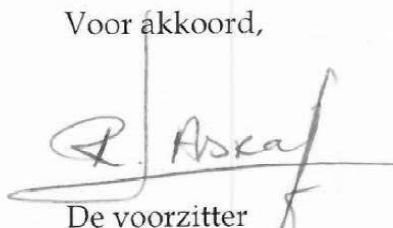 Voor akkoord,
R.
De voorzitter